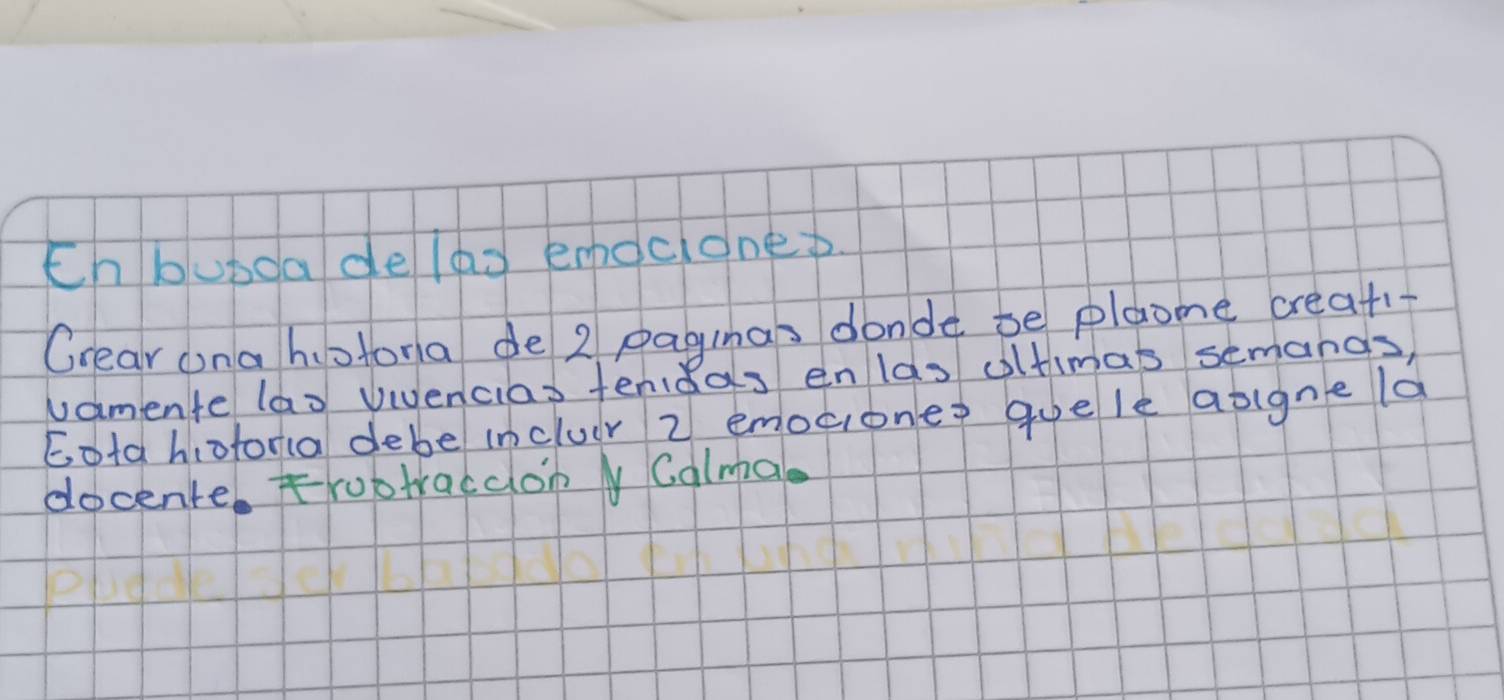 En busca de las emociones.
Crear una historia de 2 paginas donde se plasme creati-
vamente las vivencias tenidas en las ultimas semanas,
Esta historia debe incluir 2 emociones que le asigne la
docente. Frustracción y Calma.
Puede ser basado en una niña de casa